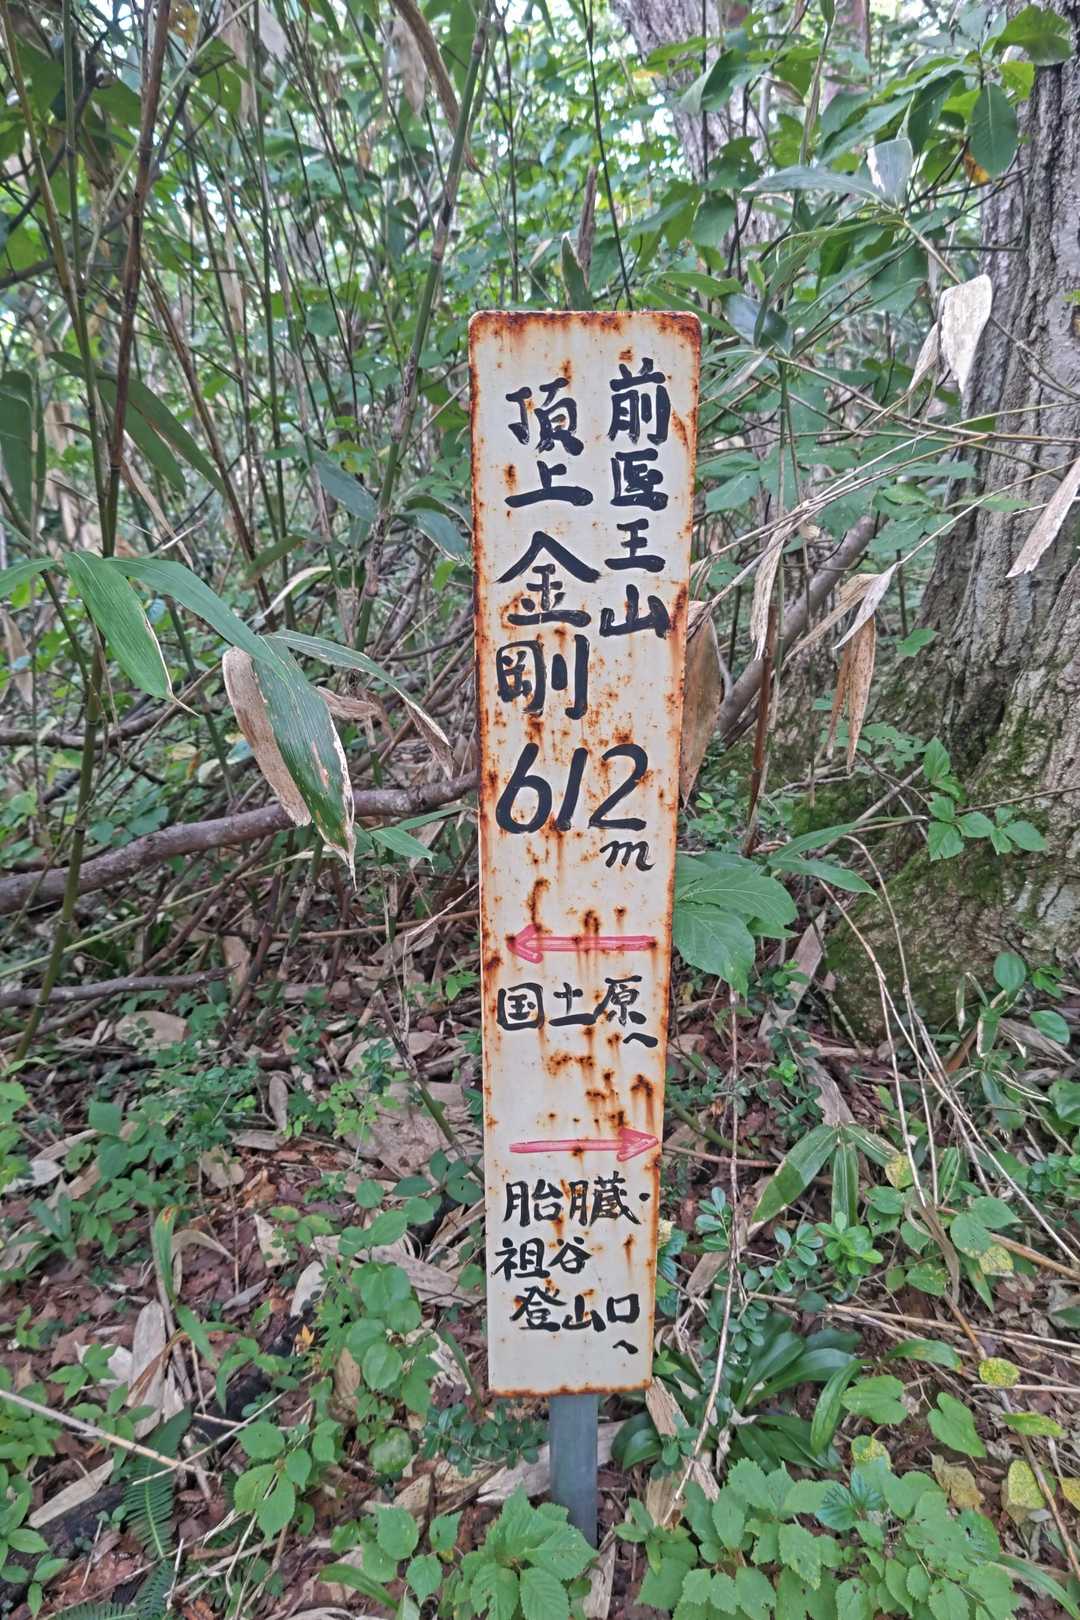 前医王山
頂上金剛
612
m
国土原へ
胎臓・
祖谷
登山口へ